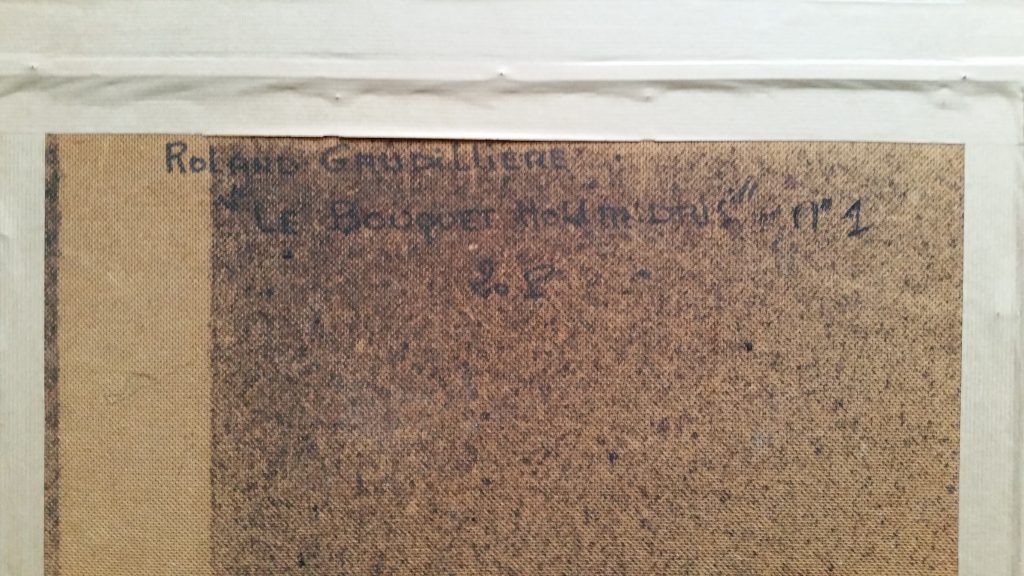 Roland Gaudilliere
"LE BOUQUET " N° 1
20 P